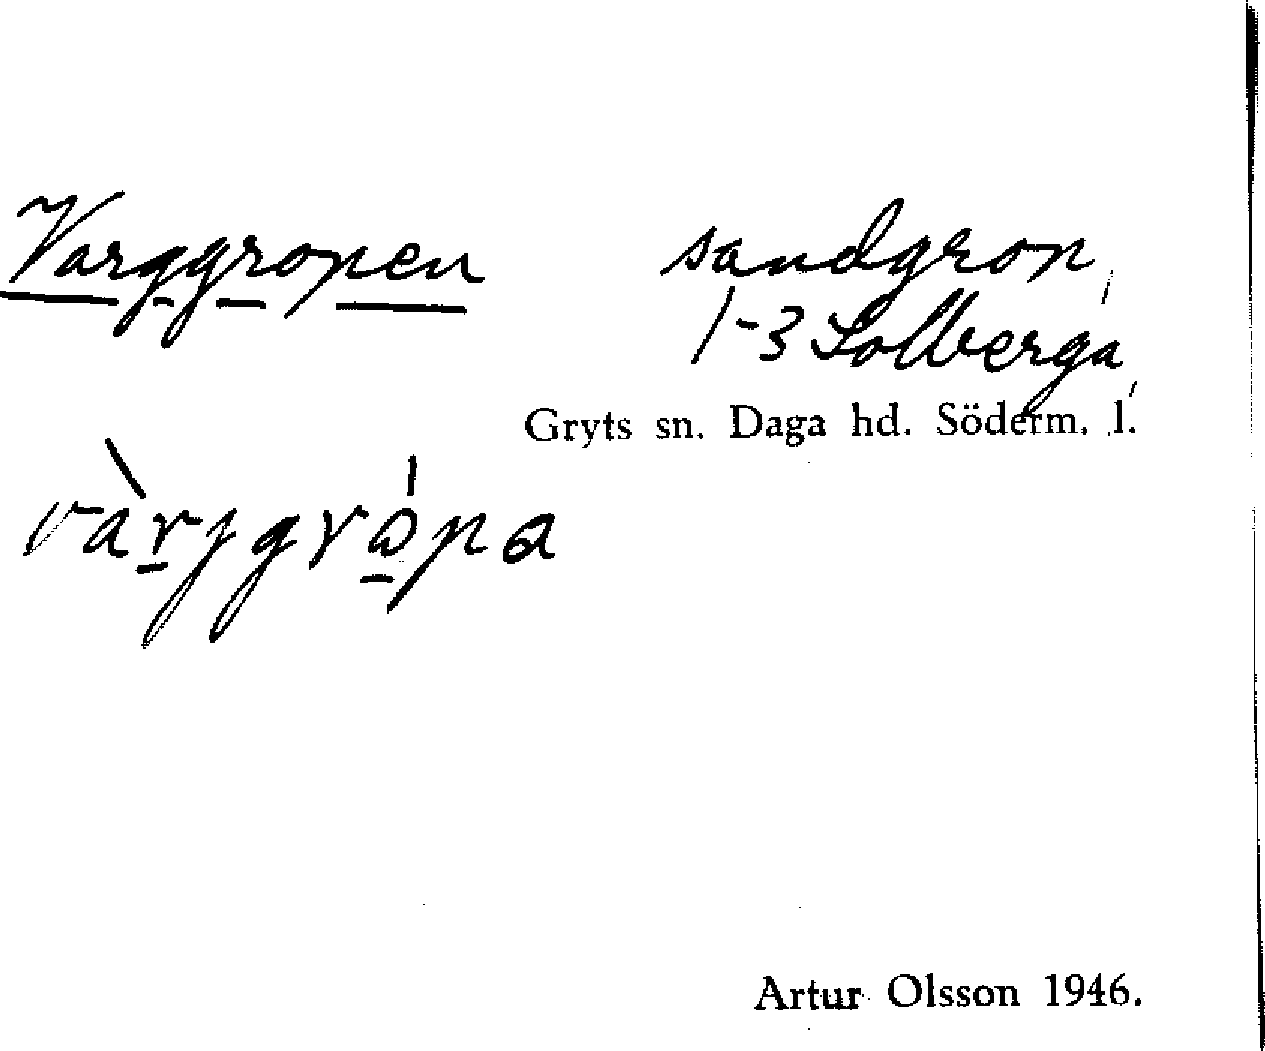 Varggropen
sandgrop,
1-3 Solberga,
Gryts sn. Daga hd. Söderm. l.
vàrjgrópa
Artur Olsson 1946.